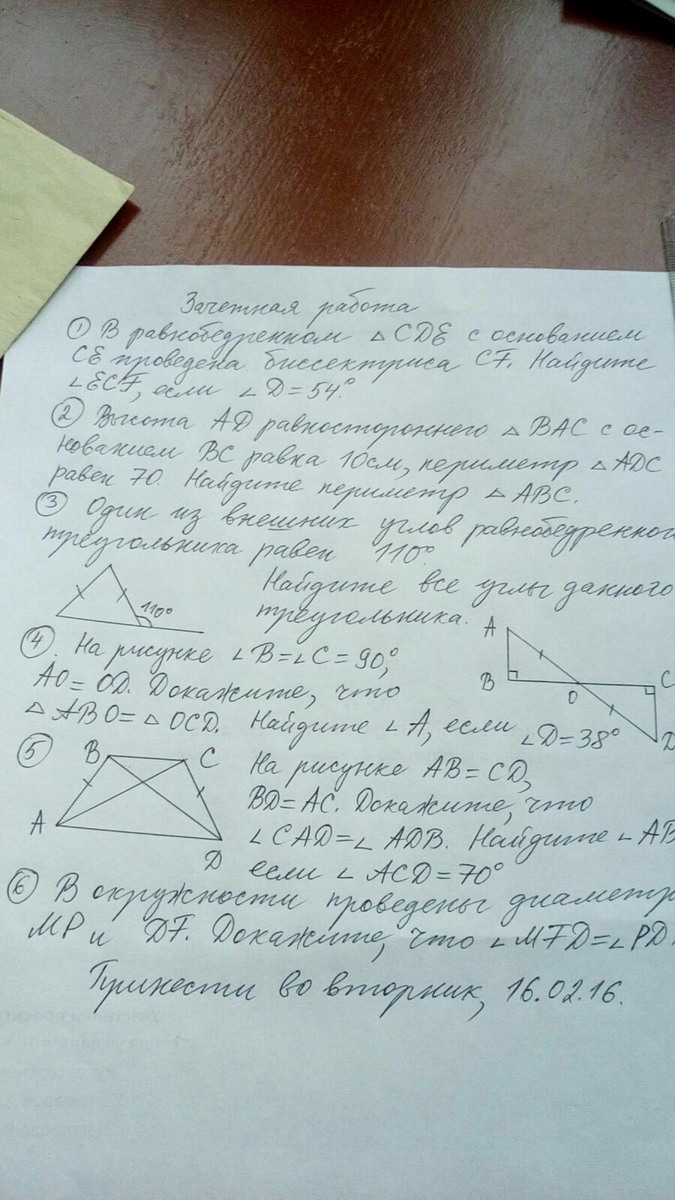 Зачетная работа
① В равнобедренном △ CDE с основанием
CE проведена биссектриса CF. Найдите
∠ECF, если ∠D=54°.
② Высота AD равностороннего △ BAC с ос-
нованием BC равна 10см, периметр △ ADC
равен 70. Найдите периметр △ ABC.
③ Один из внешних углов равнобедренного
треугольника равен 110°.
Найдите все углы данного
треугольника.
110°
④. На рисунке ∠B=∠C=90°,
AO=OD. Докажите, что
△ABO=△OCD. Найдите ∠A, если ∠D=38°
A
B
O
C
D
⑤ На рисунке AB=CD,
BD=AC. Докажите, что
∠CAD=∠ADB. Найдите ∠AB
если ∠ACD=70°
B C
A
D
⑥ В окружности проведены диаметр
MP и DF. Докажите, что ∠MFD=∠PD
Принести во вторник, 16.02.16.